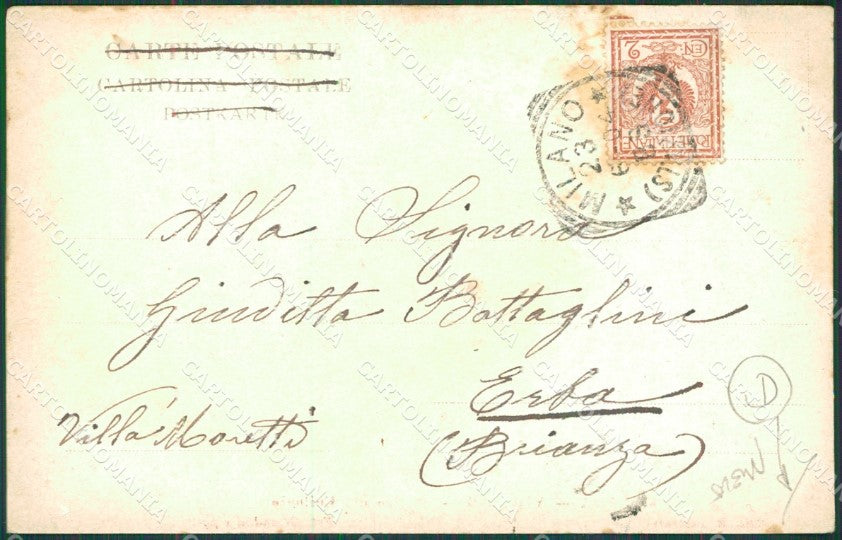 CARTE POSTALE
CARTOLINA POSTALE
POSTKARTE
CEN 2
MILANO
23
Alla Signora
Giuditta Battaglini
Erba
(Brianza)
Villa Moretti
D
CARTOLINOMANIA